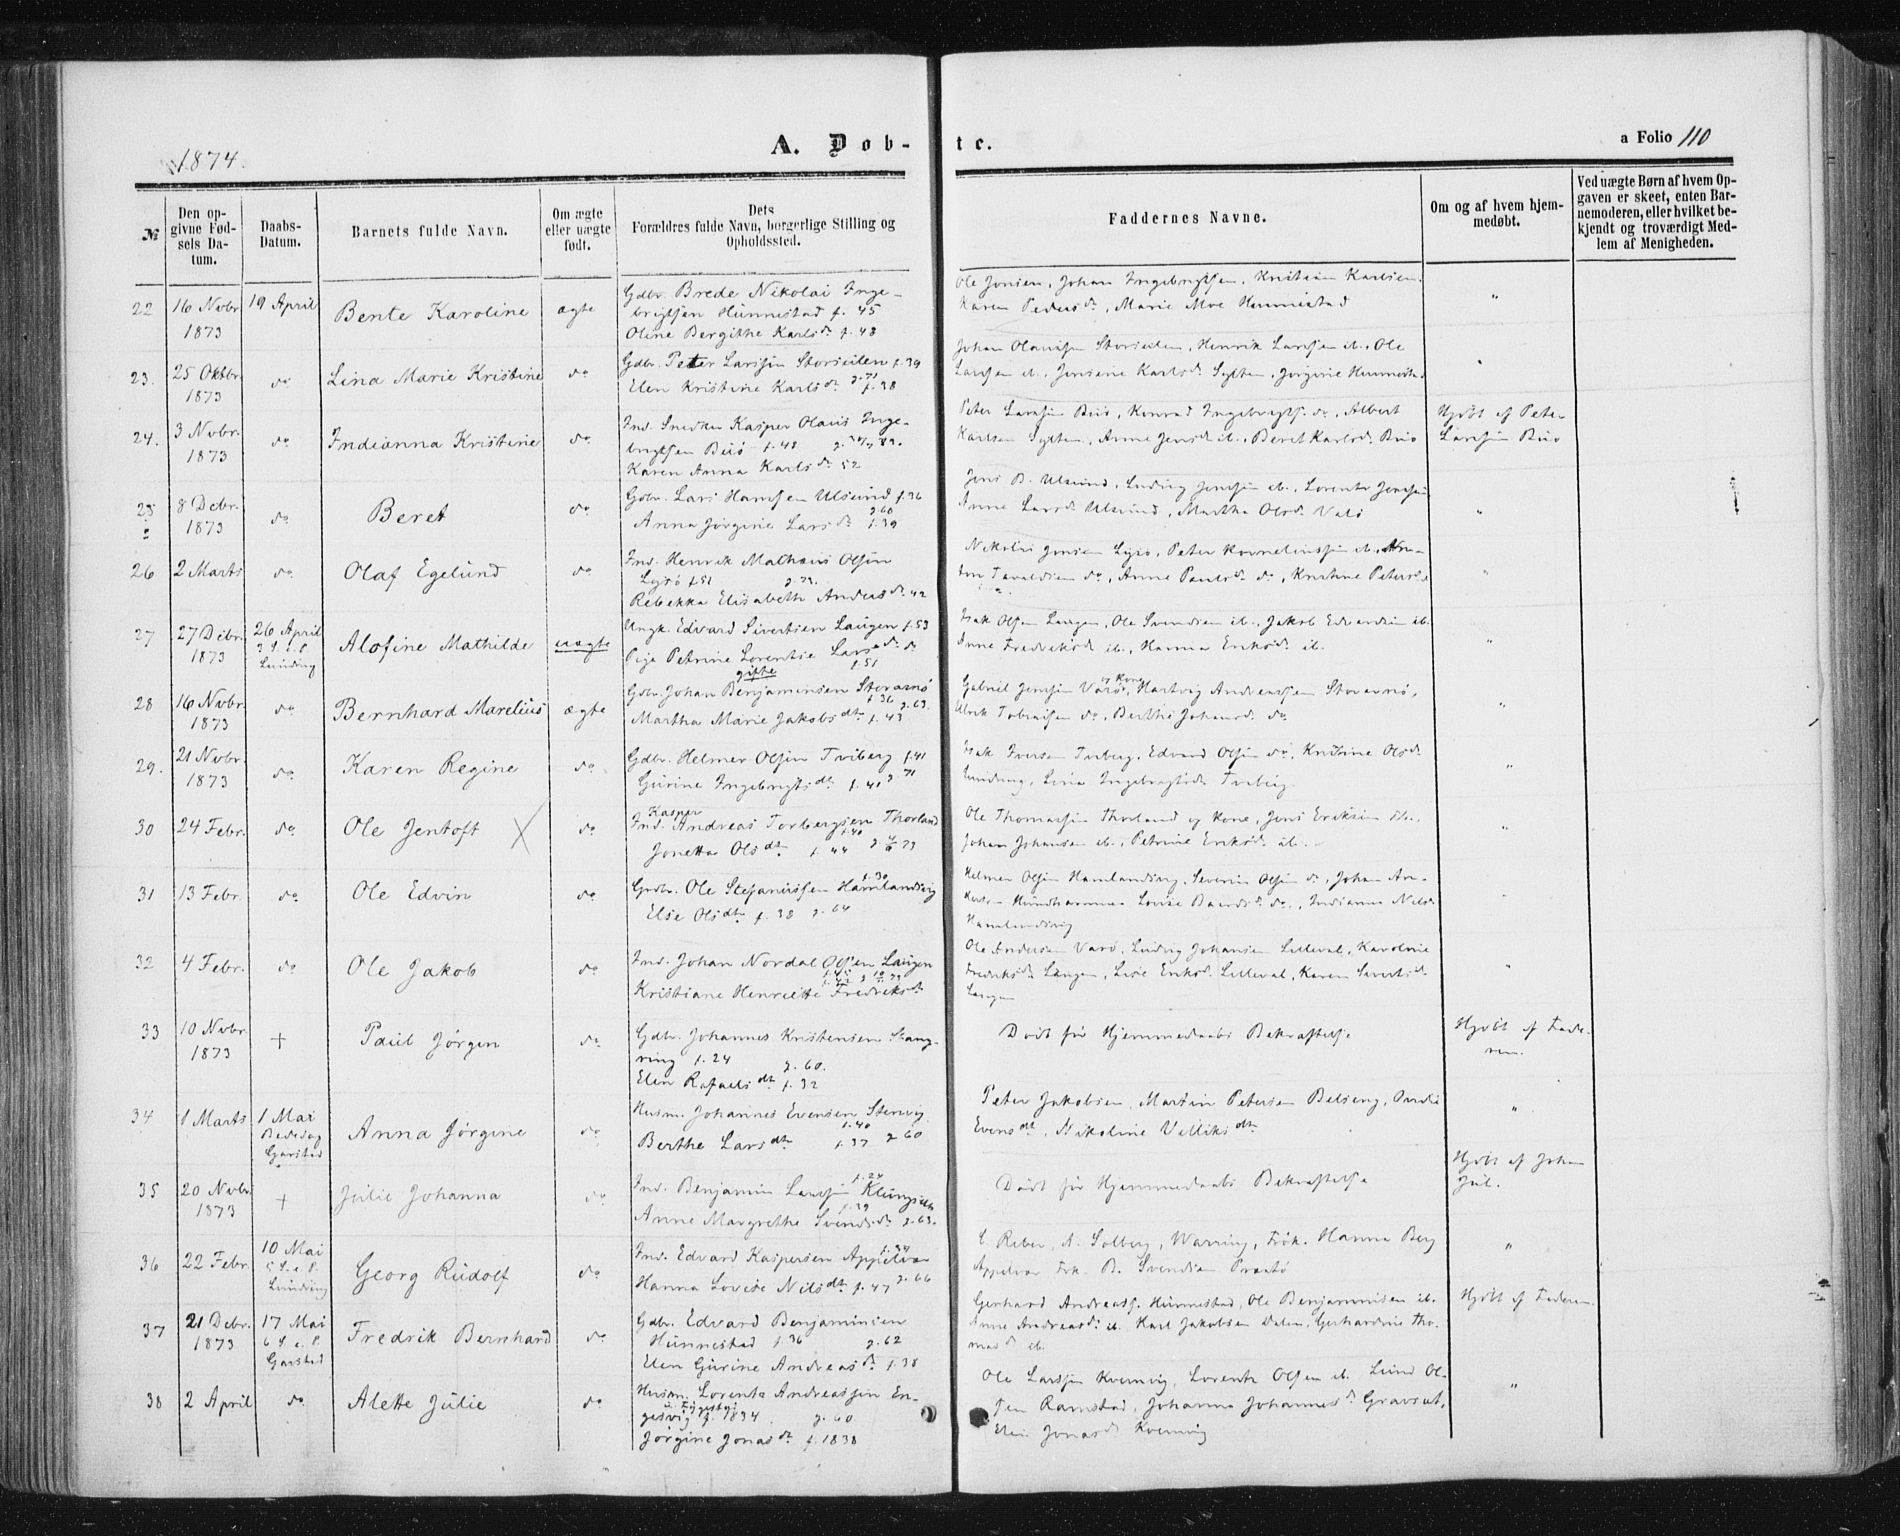 1874.
A. Døb-
te.
a Folio 110
№
Den op-
givne Fød-
sels Da-
tum.
Daabs-
Datum.
Barnets fulde Navn.
Om ægte
eller uægte
født.
Dets
Forældres fulde Navn, borgerlige Stilling og
Opholdssted.
Faddernes Navne.
Om og af hvem hjem-
medøbt.
Ved uægte Børn af hvem Op-
gaven er skeet, enten Bar-
nemoderen, eller hvilket be-
kjendt og troværdigt Med-
lem af Menigheden.
22 16 Novbr 1873 19 April Bente Karoline ægte
Gdbr. Brede Nikolai Inge-
brigtsen Hunnestad f. 45
Oline Bergithe Karlsdr f. 48
Ole Jonsen, Johan Ingebrigtsen, Kristian Karlsen,
Karen Pedersdr, Marie Moe Hunnestad "
23. 25 Oktbr. 1873 do Lina Marie Kristine do
Gdbr. Peter Larssen Storseilen f. 39
Elen Kristine Karlsdr g. 71 f. 38
Johan Olaussen Storseilen, Henrik Larssen ib., Ole
Larssen ib., Jensine Karlsdr Sylten, Jørgine Hunnestad "
24. 3 Novbr. 1873 do Indianna Kristine do
Ind. Snedker Kasper Olaus Inge-
brigtsen Buø f. 48
Karen Anna Karlsdr 52
Peter Larssen Buø, Konrad Ingebrigts. do, Albert
Karlsen Sylten, Anne Jensdr ib., Beret Karlsdr Buø
Hjdbt af Peter
Larssen Buø
25 8 Debr. 1873 do Beret do
Gdbr. Lars Hanssen Ulsund f. 36
Anna Jørgine Larsdr g. 60 f. 39
Jens B. Ulsund, Ludvig Jenssen ib., Lorents Jenssen
Anne Larsdr Ulsund, Martha Olsdr Valø "
26 2 Marts do Olaf Egelund do
Ind. Henrik Mathæus Olsen
Lysø f. 51 g. 72.
Rebekka Elisabeth Andersdr 42
Nikolai Jonsen Lysø, Peter Korneliussen ib.,
Anne Paulsdr do, Kristine Petersdr "
27 27 Debr. 1873 26 April 3 S. e. P. Lunding Alofine Mathilde uægte
Ungk. Edvard Sivertsen Laugen f. 53
Pige Petrine Lorentse Larsdr do
gifte f. 51
Isak Olsen Laugen, Ole Svendsen ib., Jakob Edvardsen ib.
Anne Fredriksdr ib., Hanna Eriksdr ib. "
28 16 Novbr. 1873 do Bernhard Marelius ægte
Gdbr. Johan Benjaminsen Storarnø
f. 36 g. 63.
Martha Marie Jakobsdtr f. 43
Gabriel Jenssen Varø og Kone, Hartvig Andreassen Storarnø,
Ulrik Tobiassen do, Berthe Johansdr do "
29. 21 Novbr. 1873 do Karen Regine do
Gdbr. Helmer Olsen Tviberg f. 41
Gurine Ingebrigtsdtr f. 41 g. 71
Isak Iversen Tviberg, Edvard Olsen do, Kristine Olsdr
Lunding, Lina Ingebrigtsdr Tviberg. "
30 24 Febr. do Ole Jentoft X do
Kasper
Ind. Andreas Torbergsen Thorland
f. 40
Jonetta Olsdtr f. 44
Ole Thomassen Thorland og Kone, Jens Eriksen ib.,
Johan Johansen ib., Petrine Eriksdr ib. "
31 13 Febr. do Ole Edvin do
Gdbr. Ole Stefanussen Hamlandsvig
f. 30
Else Olsdtr f. 38 g. 64
Helmer Olsen Hamlandsvig, Severin Olsen do, Johan An-
Hundhammer Lovise do, Indianna Nilsdr
Hamlandsvig "
32 4 Febr. do Ole Jakob do
Ind. Johan Nordal Olsen Laugen
Kristiane Henriette Fredriksdr
Ole Andersen Varø, Ludvig Johansen Lilleval, Karoline
Fredriksdr Laugen, Lise Eriksdr Lilleval, Karen Sivertsdr
Laugen "
33 10 Novbr. 1873 + Paul Jørgen do
Gdbr. Johannes Kristensen Stang-
ring f. 24 g. 60.
Elen Rafaelsdtr f. 32
Dødt før Hjemmedaabs Bekræftelse
Hjdbt af Fade-
ren.
34 1 Marts 1 Mai Bededag Garstad Anna Jørgine do
Husm. Johannes Evensen Stenvig
f. 40
Berthe Larsdtr f. 37 g. 60
Peter Jakobsen, Martin Petersen Belseng,
Evensdtr, Nikoline Villiksdtr "
35 20 Novbr. 1873 + Julie Johanna do
Ind. Benjamin Larssen
f. 24
Anne Margrethe Svendsdr f. 39 g. 63.
Dødt før Hjemmedaabs Bekræftelse
Hjdbt af Johan
Jul.
36 22 Febr. 10 Mai 5 S. e. P. Lunding Georg Rudolf do
Ind. Edvard Kaspersen Appelvær
Hanna Lovise Nilsdtr f. 47 g. 66
C. Reber, A. Solberg, Warring, Frk. Hanna Berg
Appelvær Frk. B. Svendsen Præstø "
37 21 Debr. 1873 17 Mai 6 S. e. P. Garstad Fredrik Bernhard do
Gdbr. Edvard Benjaminsen
Hunnestad f. 36 g. 62
Elen Gurine Andreasdr f. 38
Gerhard Andreass. Hunnestad, Ole Benjaminsen ib.
Anne Andreasdr ib. Karl Jakobsen Dalen, Gerhardine Tho-
masdr ib.
Hjdbt af Faderen
38 2 April do Alette Julie do
Husm. Lorents Andreassen En-
gesvig f. 1834. g. 60
Jørgine Jonasdr f. 1838
Ole Larssen Kvennvig, Lorents Olsen ib. Lund Ol-
sen Ramstad, Johanna Johannesdr Gravset,
Elen Jonasdr Kvennvig "